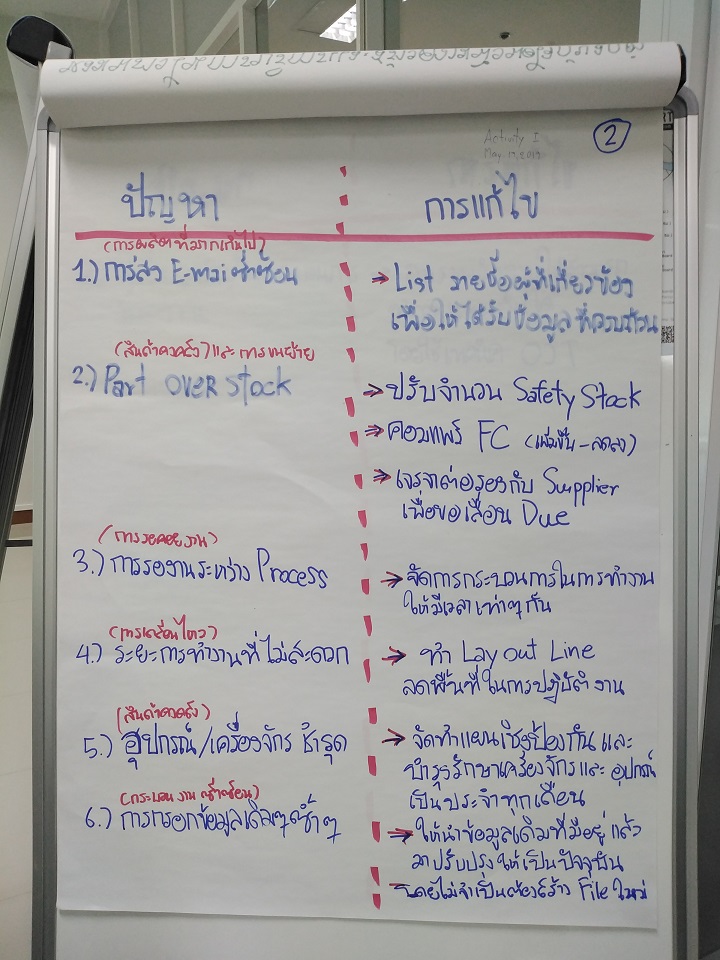 Activity I
May 17, 2019
2
ปัญหา
การแก้ไข
(การผลิตที่มากเกินไป)
1.) การส่ง E-mail ซ้ำซ้อน
→ List รายชื่อผู้ที่เกี่ยวข้อง
เพื่อให้ได้รับข้อมูลที่ครบถ้วน
(สินค้าคงคลัง) และ การขนย้าย
2.) Part OVER Stock
→ ปรับจำนวน Safety Stock
→ คอมแพร์ FC (เพิ่มขึ้น - ลดลง)
→ เจรจาต่อรองกับ Supplier
เพื่อขอเลื่อน Due
(การรอคอยงาน)
3.) การรองานระหว่าง Process
→ จัดการกระบวนการในการทำงาน
ให้มีเวลาเท่าๆกัน
(การเคลื่อนไหว)
4.) ระยะการทำงานที่ไม่สะดวก
→ ทำ Lay out Line
ลดพื้นที่ในการปฏิบัติงาน
(สินค้าคงคลัง)
5.) อุปกรณ์/เครื่องจักร ชำรุด
→ จัดทำแผนเชิงป้องกัน และ
บำรุงรักษาเครื่องจักรและ อุปกรณ์
เป็นประจำทุกเดือน
(กระบวนงานซ้ำซ้อน)
6.) การกรอกข้อมูลเดิมๆซ้ำๆ
→ ให้นำข้อมูลเดิมที่มีอยู่แล้ว
มาปรับปรุงให้เป็นปัจจุบัน
โดยไม่จำเป็นต้องสร้าง File ใหม่